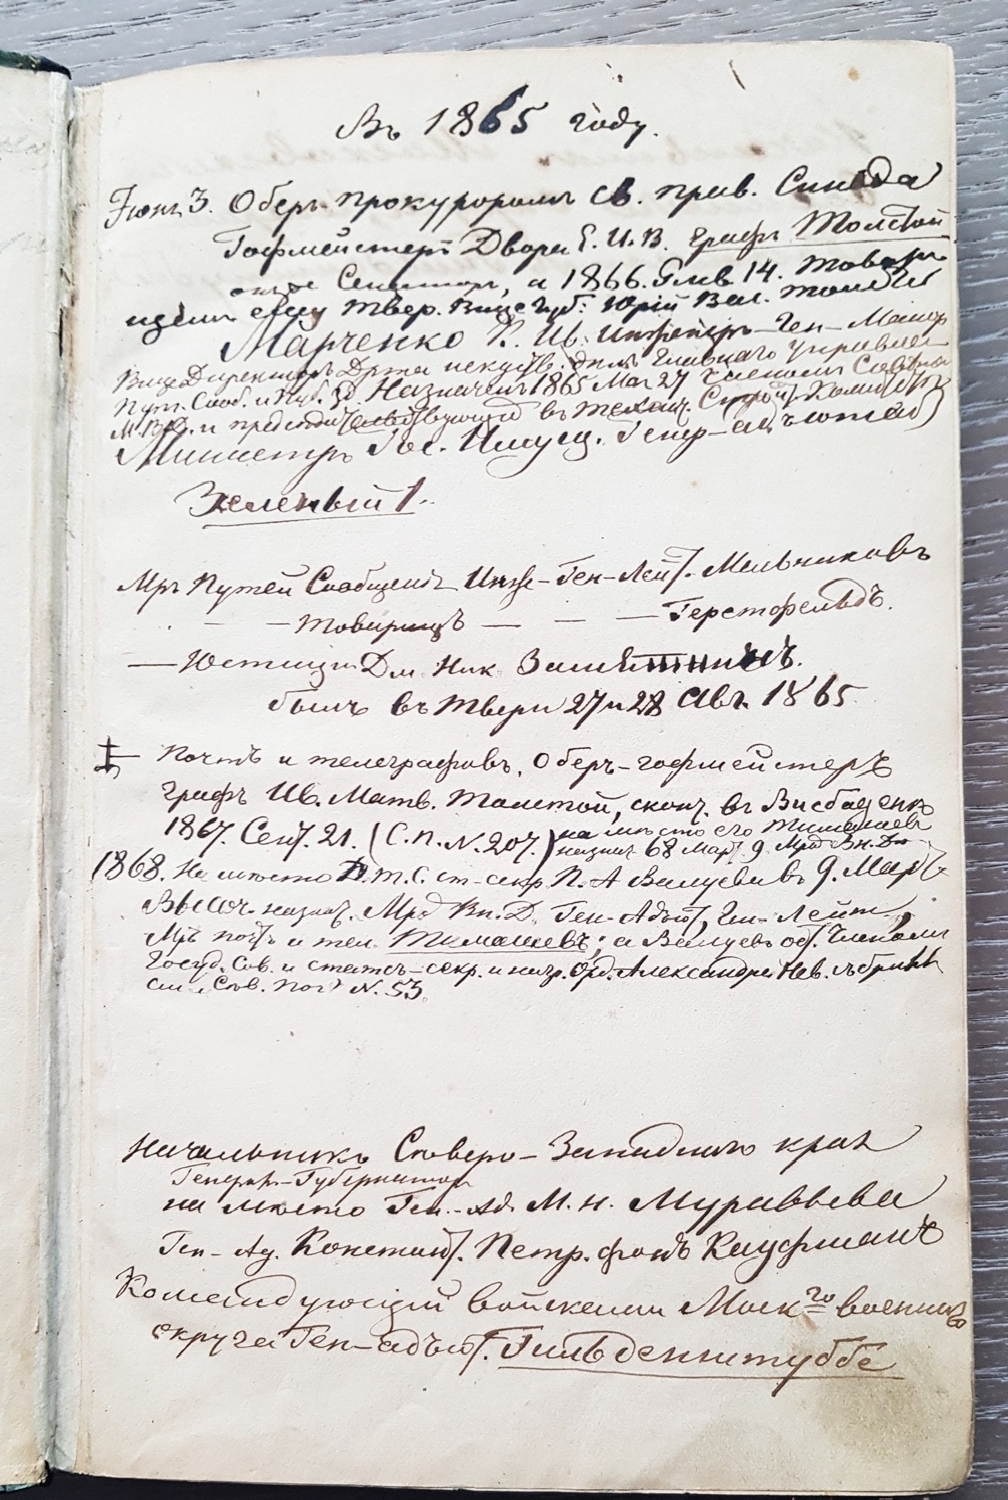 Въ 1865 году.
Іюнь 3. Оберъ прокуроромъ Св. прав. Синода
Гофмейстеръ Двора Е. И. В. графъ Толстой
онже Сенаторъ, а 1866. Янв 14. Товари
щемъ ему Твер. Вицегуб. Юрій Вас. Толстой
Марченко К. Ив. Инженеръ-Ген-Маіор
Вице Директоръ Д-рта искуств. дѣлъ Главнаго Управлен
Пут. Сооб. и Пуб. Зд. Назначенъ 1865 Мая 27 Членомъ Совѣта
М. В. Д. и предсѣдательствующій въ Технич. Строит. Комитетѣ
Министръ Гос. Имущ. Генер-адъютант
Зеленый 1.
Мръ Путей Сообщенія Инже-Ген-Лейт. Мельниковъ
— — Товарищъ — — — Герстфельдъ.
— Юстиціи Дм. Ник. Замятнинъ.
былъ въ Твери 27 и 28 Авг. 1865.
Почтъ и телеграфовъ, Оберъ-гофмейстеръ
графъ Ив. Матв. Толстой, сконч. въ Висбаденѣ
1867. Сент. 21. (С. П. N. 207.) на мѣсто его Тимашевъ
назнач. 68 Март. 9. Мрд Вн. Дѣ
1868. На мѣсто Д. т. С. ст-секр П. А Валуева въ 9. Март
Высоч. назнач. Мрд Вн. Д. Ген-Адъют, Ген-Лейт,
Мръ почт и тел. Тимашевъ; а Валуевъ ос. Членомъ
Госуд. Сов. и статсъ-секр. и нагр. Орд. Александра Нев. съ брилл
см. Сѣв. Поч. N. 53.
Начальникъ Сѣверо-Западнаго края
Генерал-Губернатор
на мѣсто Ген.-Ад. М. Н. Муравьева
Ген-Ад. Констант. Петр. фонъ Кауфманъ
Командующій войсками Моск.го военнаго
округа Ген-адъют. Гильденштуббе